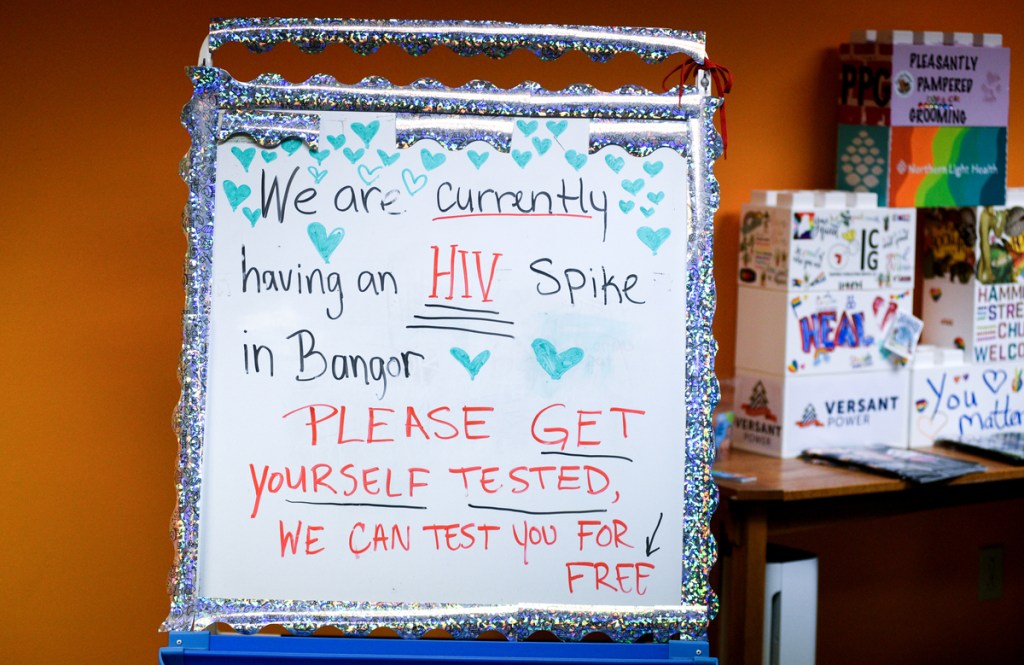 We are currently
having an HIV Spike
in Bangor
PLEASE GET
YOURSELF TESTED,
WE CAN TEST YOU FOR
FREE
PPG
PLEASANTLY
PAMPERED
GROOMING
Northern Light Health
ICG
HEAL
HAMM
STRE
CHU
WELCO
VERSANT
POWER
VERSANT
POWER
You
Matte